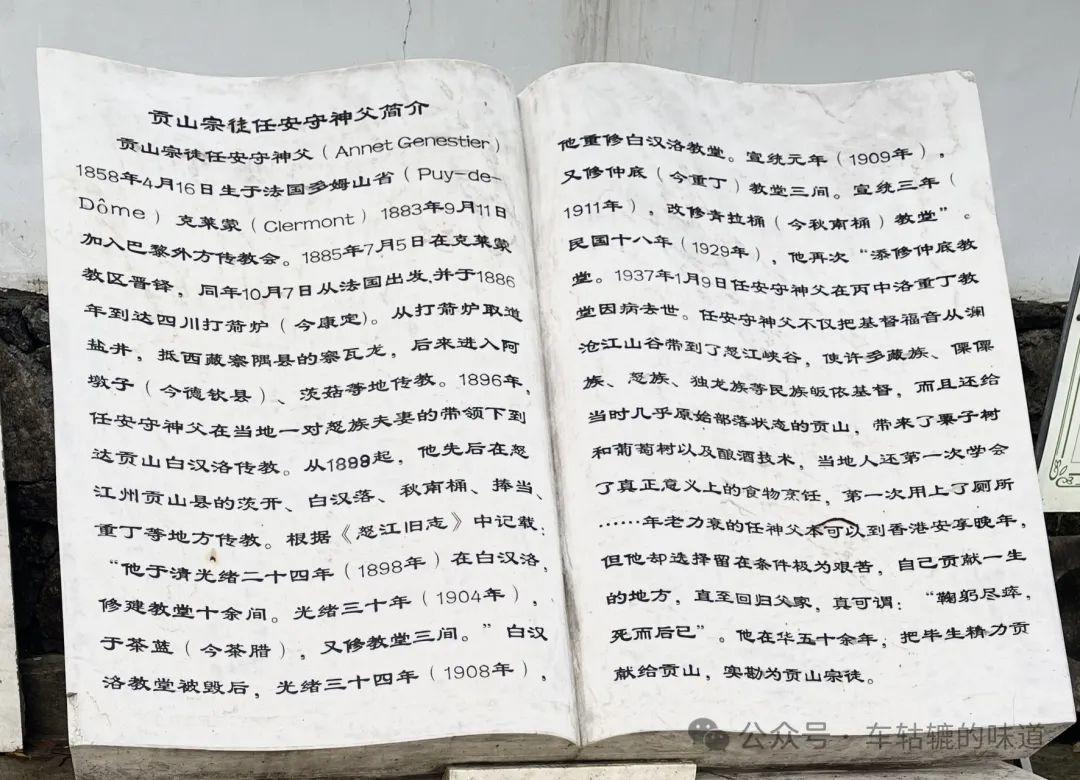 贡山宗徒任安守神父简介
贡山宗徒任安守神父（Annet Genestier）
1858年4月16日生于法国多姆山省（Puy-de-
Dôme）克莱蒙（Clermont）1883年9月11日
加入巴黎外方传教会。1885年7月5日在克莱蒙
教区晋铎，同年10月7日从法国出发,并于1886
年到达四川打箭炉（今康定）。从打箭炉取道
盐井，抵西藏察隅县的察瓦龙，后来进入阿
墩子（今德钦县）、茨菇等地传教。1896年，
任安守神父在当地一对怒族夫妻的带领下到
达贡山白汉洛传教。从1899起，他先后在怒
江州贡山县的茨开、白汉落、秋南桶、捧当、
重丁等地方传教。根据《怒江旧志》中记载：
“他于清光绪二十四年（1898年）在白汉洛，
修建教堂十余间。光绪三十年（1904年），
于茶蓝（今茶腊），又修教堂三间。”白汉
洛教堂被毁后，光绪三十四年（1908年），
他重修白汉洛教堂。宣统元年（1909年），
又修仲底（今重丁）教堂三间。宣统三年（
1911年），改修青拉桶（今秋南桶）教堂”。
民国十八年（1929年），他再次“添修仲底教
堂。1937年1月9日任安守神父在丙中洛重丁教
堂因病去世。任安守神父不仅把基督福音从澜
沧江山谷带到了怒江峡谷，使许多藏族、傈僳
族、怒族、独龙族等民族皈依基督，而且还给
当时几乎原始部落状态的贡山，带来了栗子树
和葡萄树以及酿酒技术，当地人还第一次学会
了真正意义上的食物烹饪，第一次用上了厕所
……年老力衰的任神父本可以到香港安享晚年，
但他却选择留在条件极为艰苦，自己贡献一生
的地方，直至回归父家，真可谓：“鞠躬尽瘁，
死而后已”。他在华五十余年，把毕生精力贡
献给贡山，实勘为贡山宗徒。
公众号·车轱辘的味道